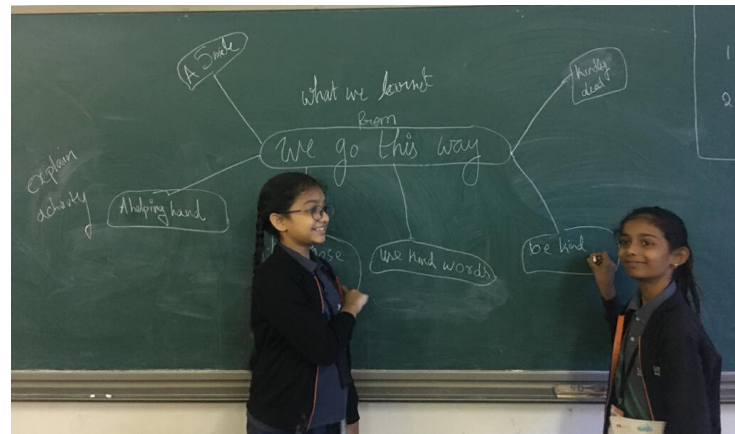 A Smile
what we learnt
from
we go this way
kindly
deed
1
2
explain
activity
A helping hand
ose
use kind words
be kind